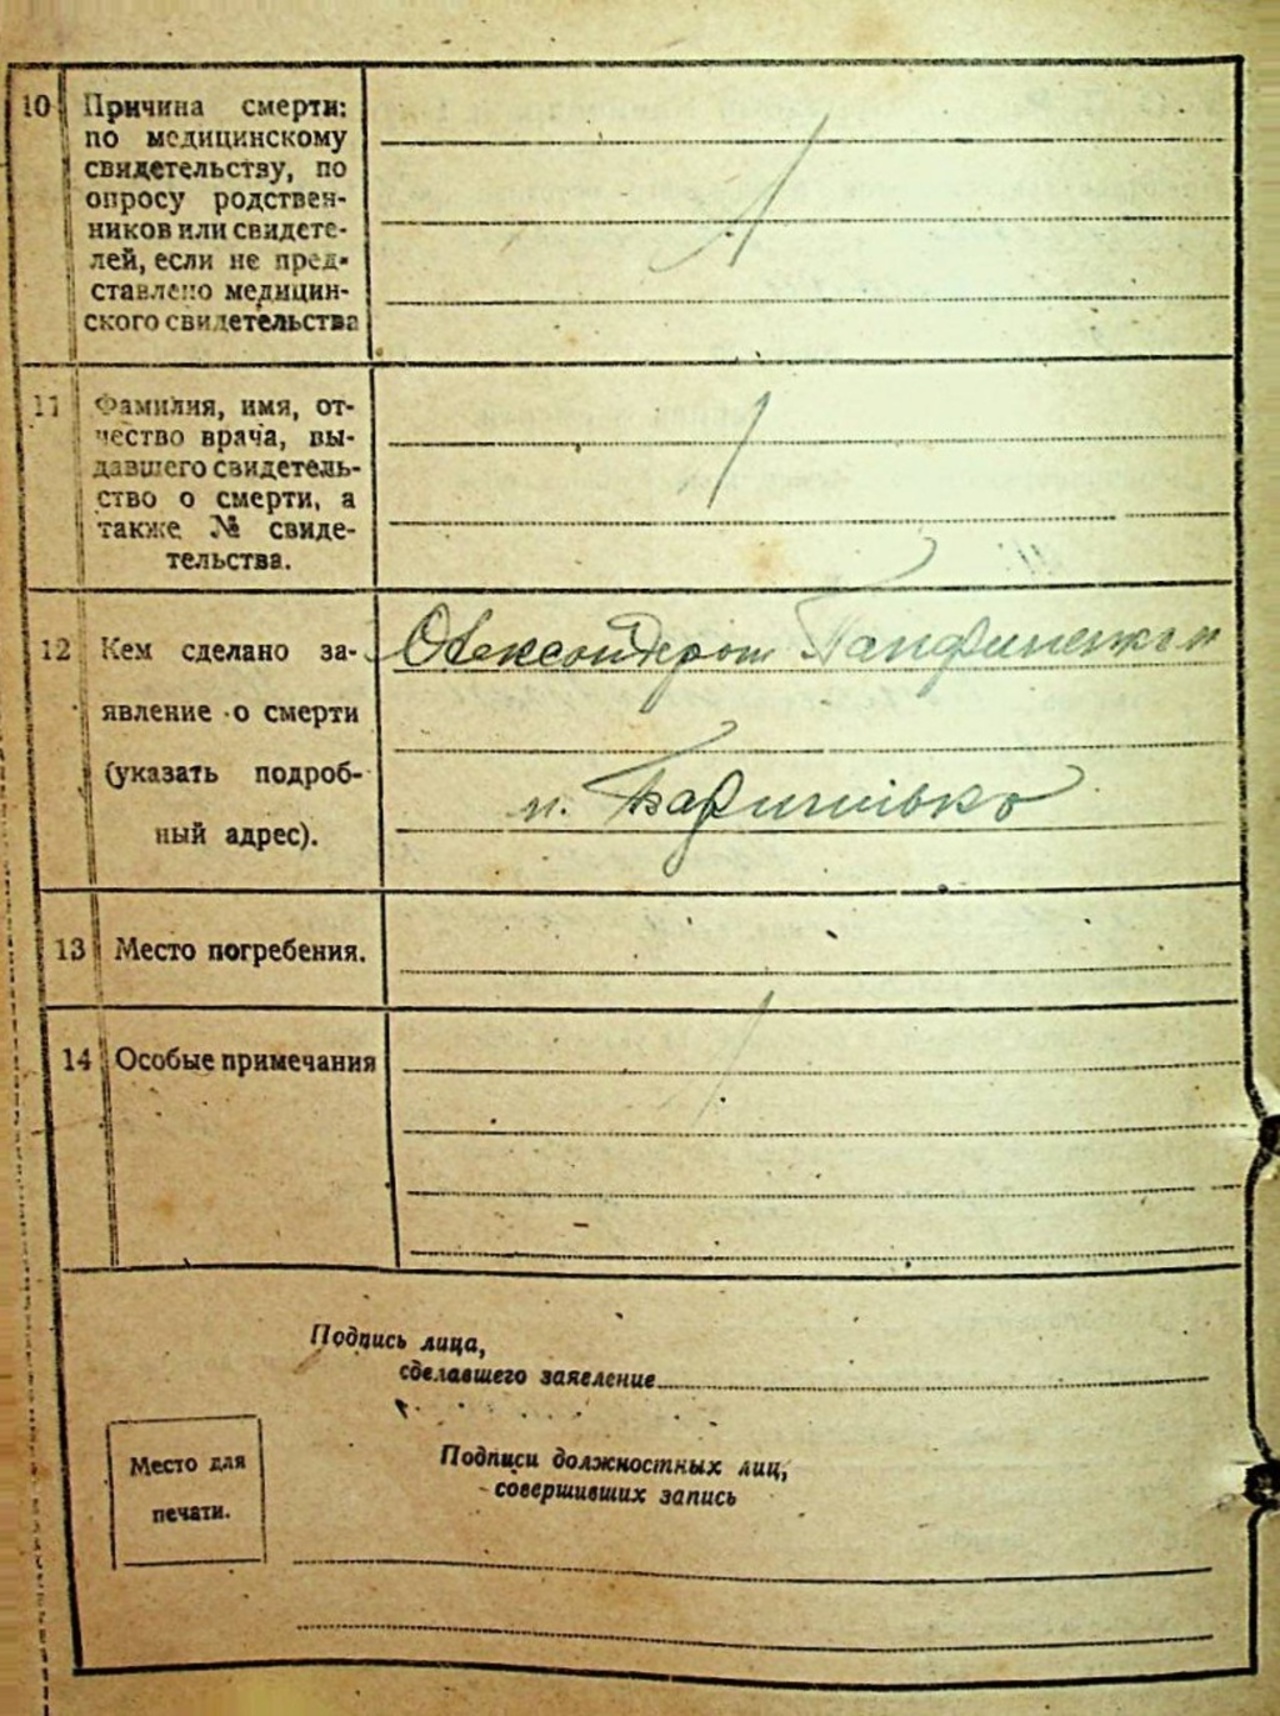 10 Причина смерти:
по медицинскому
свидетельству, по
опросу родствен-
ников или свидете-
лей, если не пред-
ставлено медицин-
ского свидетельства
11 Фамилия, имя, от-
чество врача, вы-
давшего свидетель-
ство о смерти, а
также № свиде-
тельства.
12 Кем сделано за-
явление о смерти
(указать подроб-
ный адрес).
м.
13 Место погребения.
14 Особые примечания
Подпись лица,
сделавшего заявление
Место для
печати.
Подписи должностных лиц,
совершивших запись